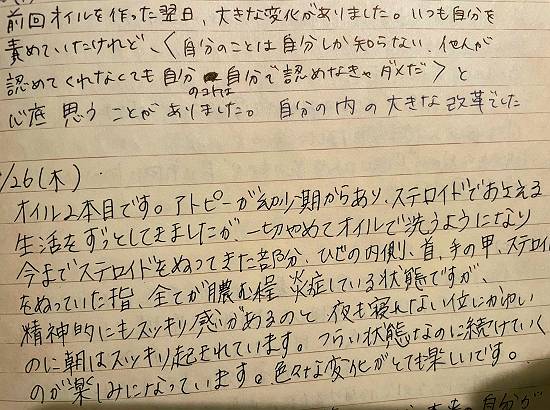 前回オイルを作った翌日、大きな変化がありました。いつも自分を
責めていたけれど、〈自分のことは自分しか知らない、他人が
認めてくれなくても自分のことは自分で認めなきゃダメだ〉と
心底思うことがありました。自分の内の大きな改革でした
/26(木)
オイル2本目です。アトピーが幼少期からあり、ステロイドでおさえる
生活をずっとしてきましたが、一切やめてオイルで洗うようになり
今までステロイドをぬってきた部分、ひじの内側、首、手の甲、ステロイ
をぬっていた指、全てが膿む程炎症している状態ですが、
精神的にもスッキリ感があるのと夜も寝れない位にかゆい
のに朝はスッキリ起きれています。つらい状態なのに続けていく
のが楽しみになっています。色々な変化がとても楽しいです。